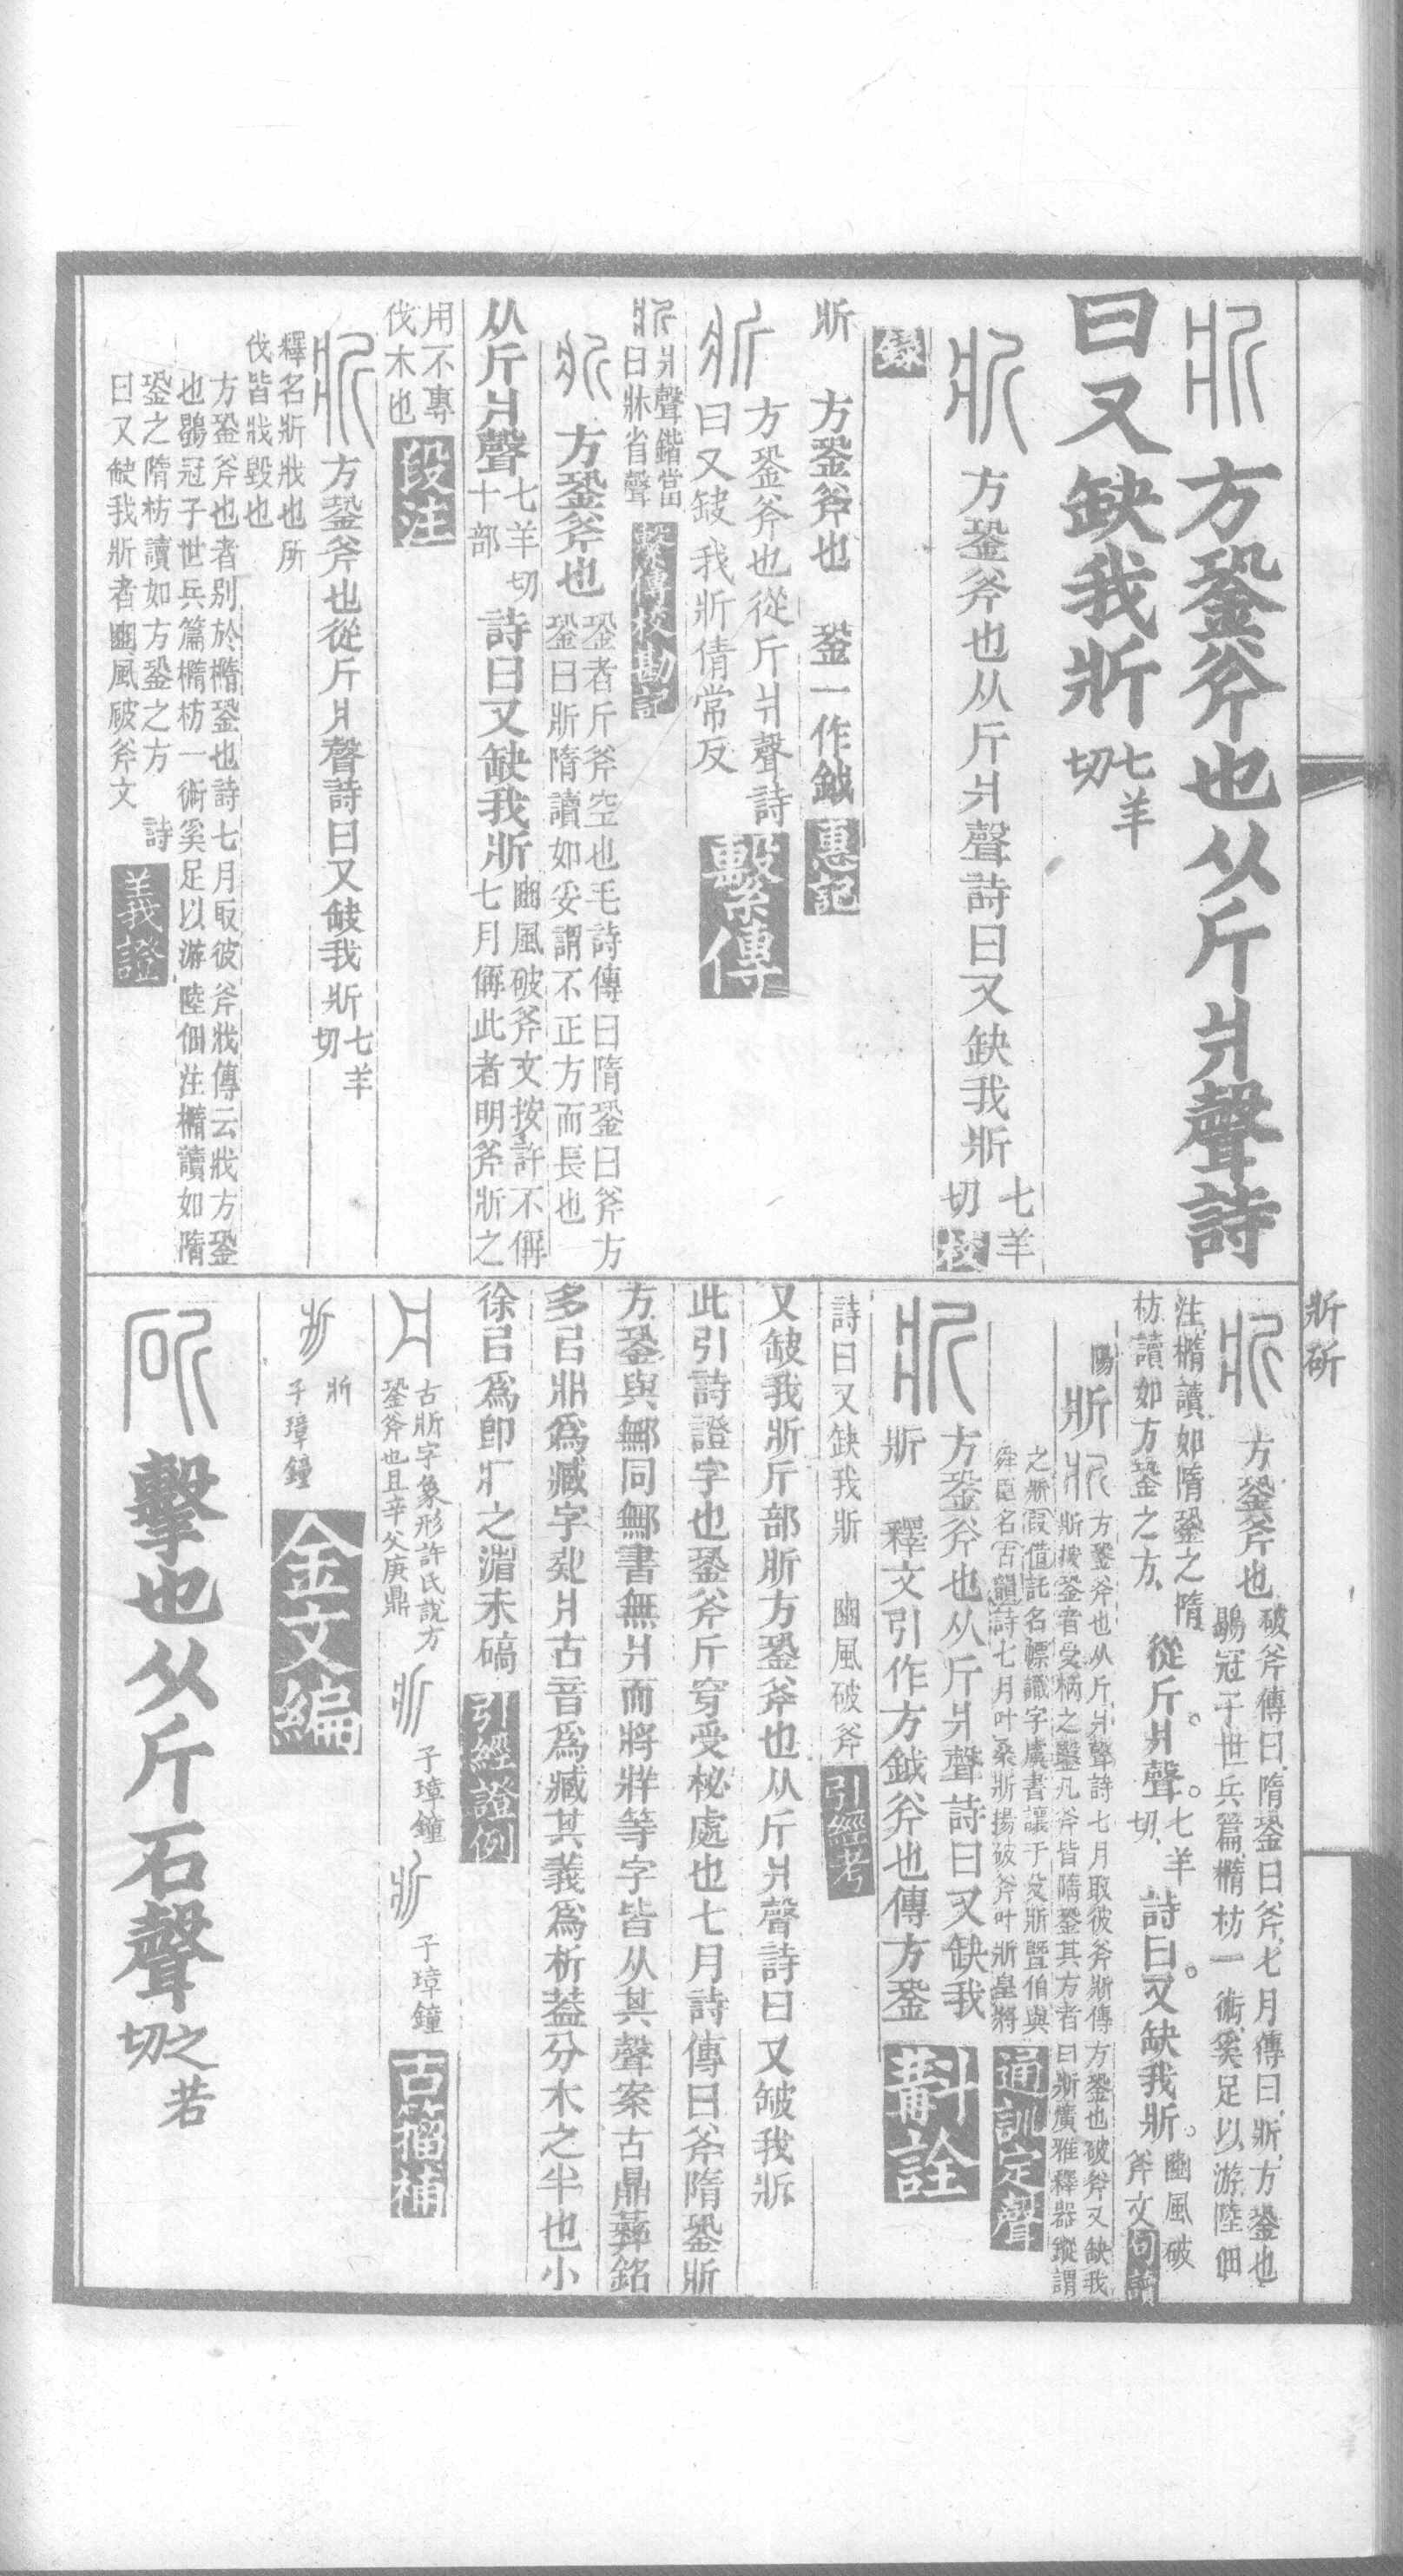 斨 方銎斧也从斤爿聲詩
曰又缺我斨 七羊切
斨 方銎斧也从斤爿聲詩曰又缺我斨 七羊切 校
錄
斨 方銎斧也 銎一作鉞 惠記
斨 方銎斧也從斤爿聲詩
曰又缺我斨倩常反 繫傳
斨 爿聲鍇當
曰牀省聲 繫傳校勘記
斨 方銎斧也 銎者斤斧空也毛詩傳曰隋銎曰斧方
銎曰斨隋讀如妥謂不正方而長也
从斤爿聲 七羊切
十部 詩曰又缺我斨 豳風破斧文按許不偁
七月偁此者明斧斨之
用不專
伐木也 段注
斨 方銎斧也從斤爿聲詩曰又缺我斨 七羊切
釋名斨戕也所
伐皆戕毀也
方銎斧也者别於橢銎也詩七月取彼斧戕傳云戕方銎
也鶡冠子世兵篇橢枋一術奚足以游陸佃注橢讀如隋
銎之隋枋讀如方銎之方 詩
曰又缺我斨者豳風破斧文 義證
斨斫
斨 方銎斧也 破斧傳曰隋銎曰斧七月傳曰斨方銎也
鶡冠子世兵篇橢枋一術奚足以游陸佃
注橢讀如隋銎之隋
枋讀如方銎之方 從斤爿聲 七羊切 詩曰又缺我斨 豳風破
斧文 句讀
陽 斨 斨 方銎斧也从斤爿聲詩七月取彼斧斨傳方銎也破斧又缺我
斨按銎者受柄之鑿凡斧皆隋銎其方者曰斨廣雅釋器
之斨 假借託名幖識字虞書讓于殳斨曁伯與
舜臣名 古韻詩七月叶桑斨揚破斧叶斨皇將 通訓定聲
斨 方銎斧也从斤爿聲詩曰又缺我
斨 釋文引作方鉞斧也傳方銎 斠詮
詩曰又缺我斨 豳風破斧 引經考
又缺我斨斤部斨方銎斧也从斤爿聲詩曰又缺我斨
此引詩證字也銎斧斤穿受柲處也七月詩傳曰斧隋銎斨
方銎與鄦同鄦書無爿而將牂等字皆从其聲案古鼎彝銘
多㠯鼑爲臧字處爿古音爲臧其義爲析葢分木之半也小
徐㠯爲卽疒之渻未碻 引經證例
古斨字象形許氏說方
銎斧也且辛父庚鼎 子璋鐘 子璋鐘 古籀補
斨
子璋鐘 金文編
斫 擊也从斤石聲 之若切